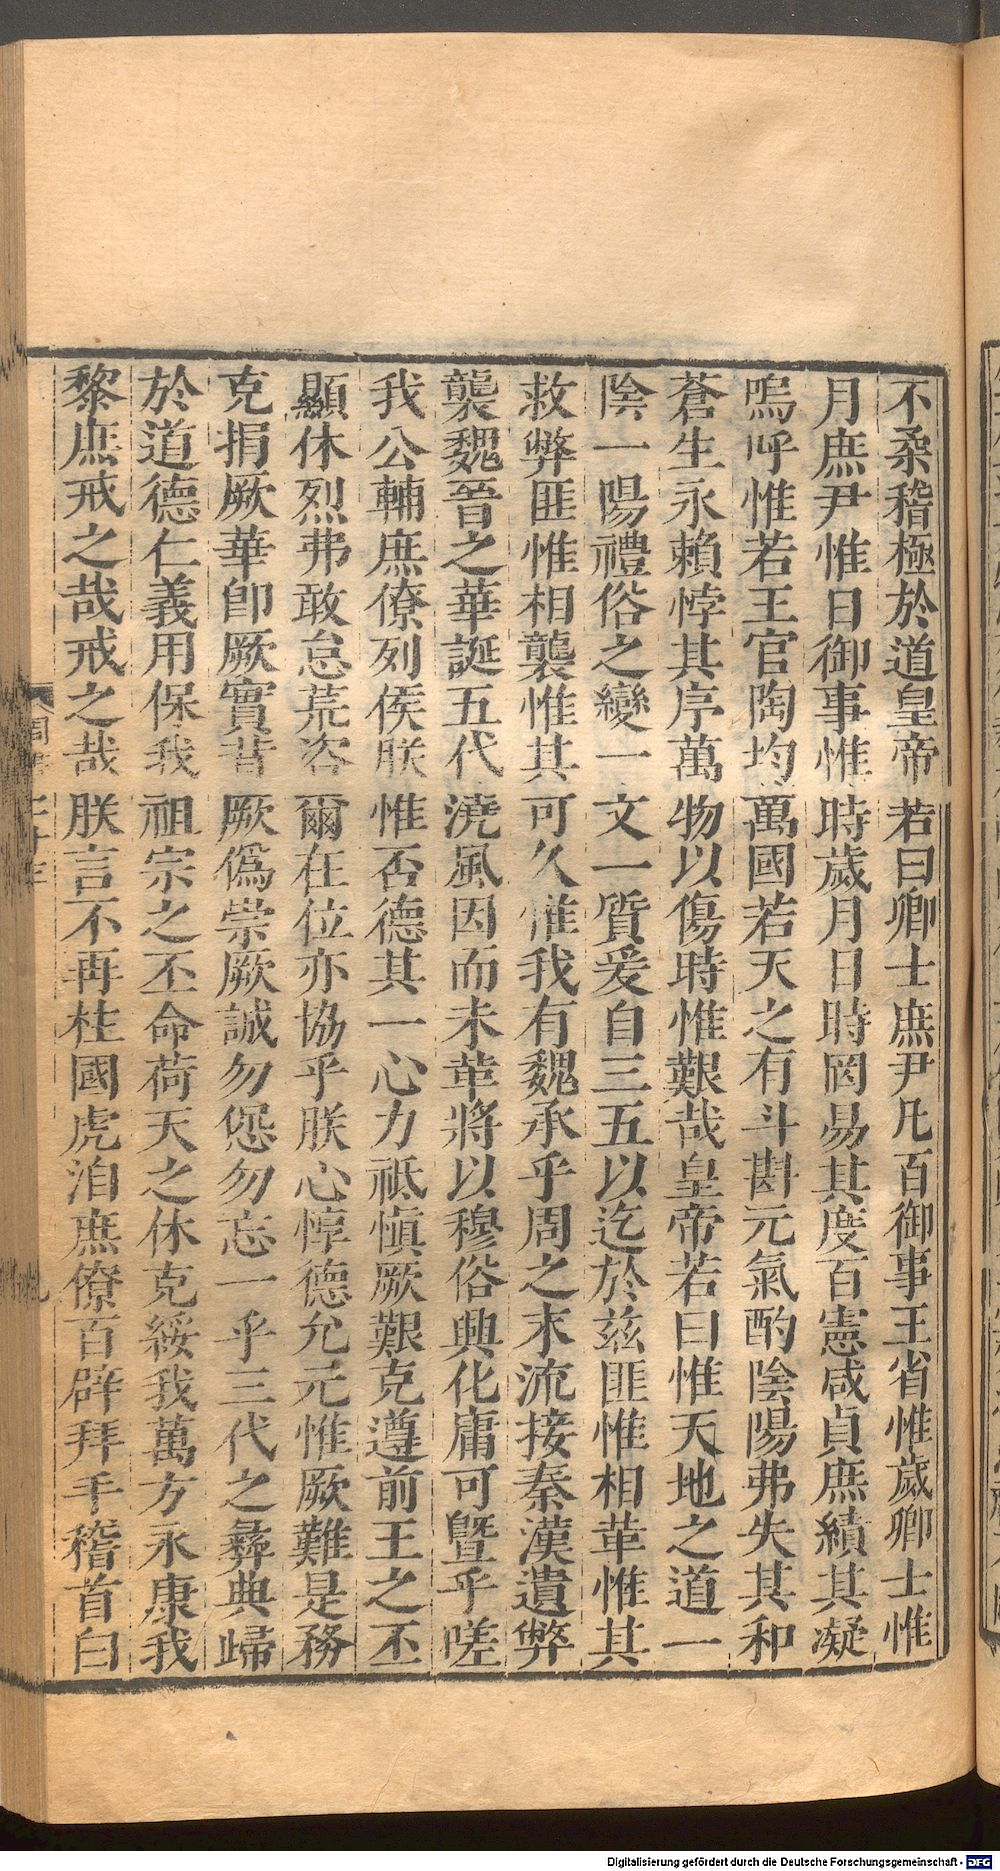 不柔稽極於道皇帝若曰卿士庶尹凡百御事王省惟歲卿士惟
月庶尹惟日御事惟時歲月日時罔易其度百憲咸貞庶績其凝
嗚呼惟若王官陶均萬國若天之有斗斟元氣酌陰陽弗失其和
蒼生永賴悖其序萬物以傷時惟艱哉皇帝若曰惟天地之道一
陰一陽禮俗之變一文一質爰自三五以迄於兹匪惟相革惟其
救弊匪惟相襲惟其可久惟我有魏承乎周之末流接秦漢遺弊
襲魏晉之華誕五代澆風因而未革將以穆俗興化庸可曁乎嗟
我公輔庶僚列侯朕惟否德其一心力祗慎厥艱克遵前王之丕
顯休烈弗敢怠荒咨爾在位亦協乎朕心惇德允元惟厥難是務
克捐厥華卽厥實背厥僞崇厥誠勿愆勿忘一乎三代之彝典歸
於道德仁義用保我祖宗之丕命荷天之休克綏我萬方永康我
黎庶戒之哉戒之哉朕言不再柱國虎洎庶僚百辟拜手稽首曰
Digitalisierung gefördert durch die Deutsche Forschungsgemeinschaft - DFG